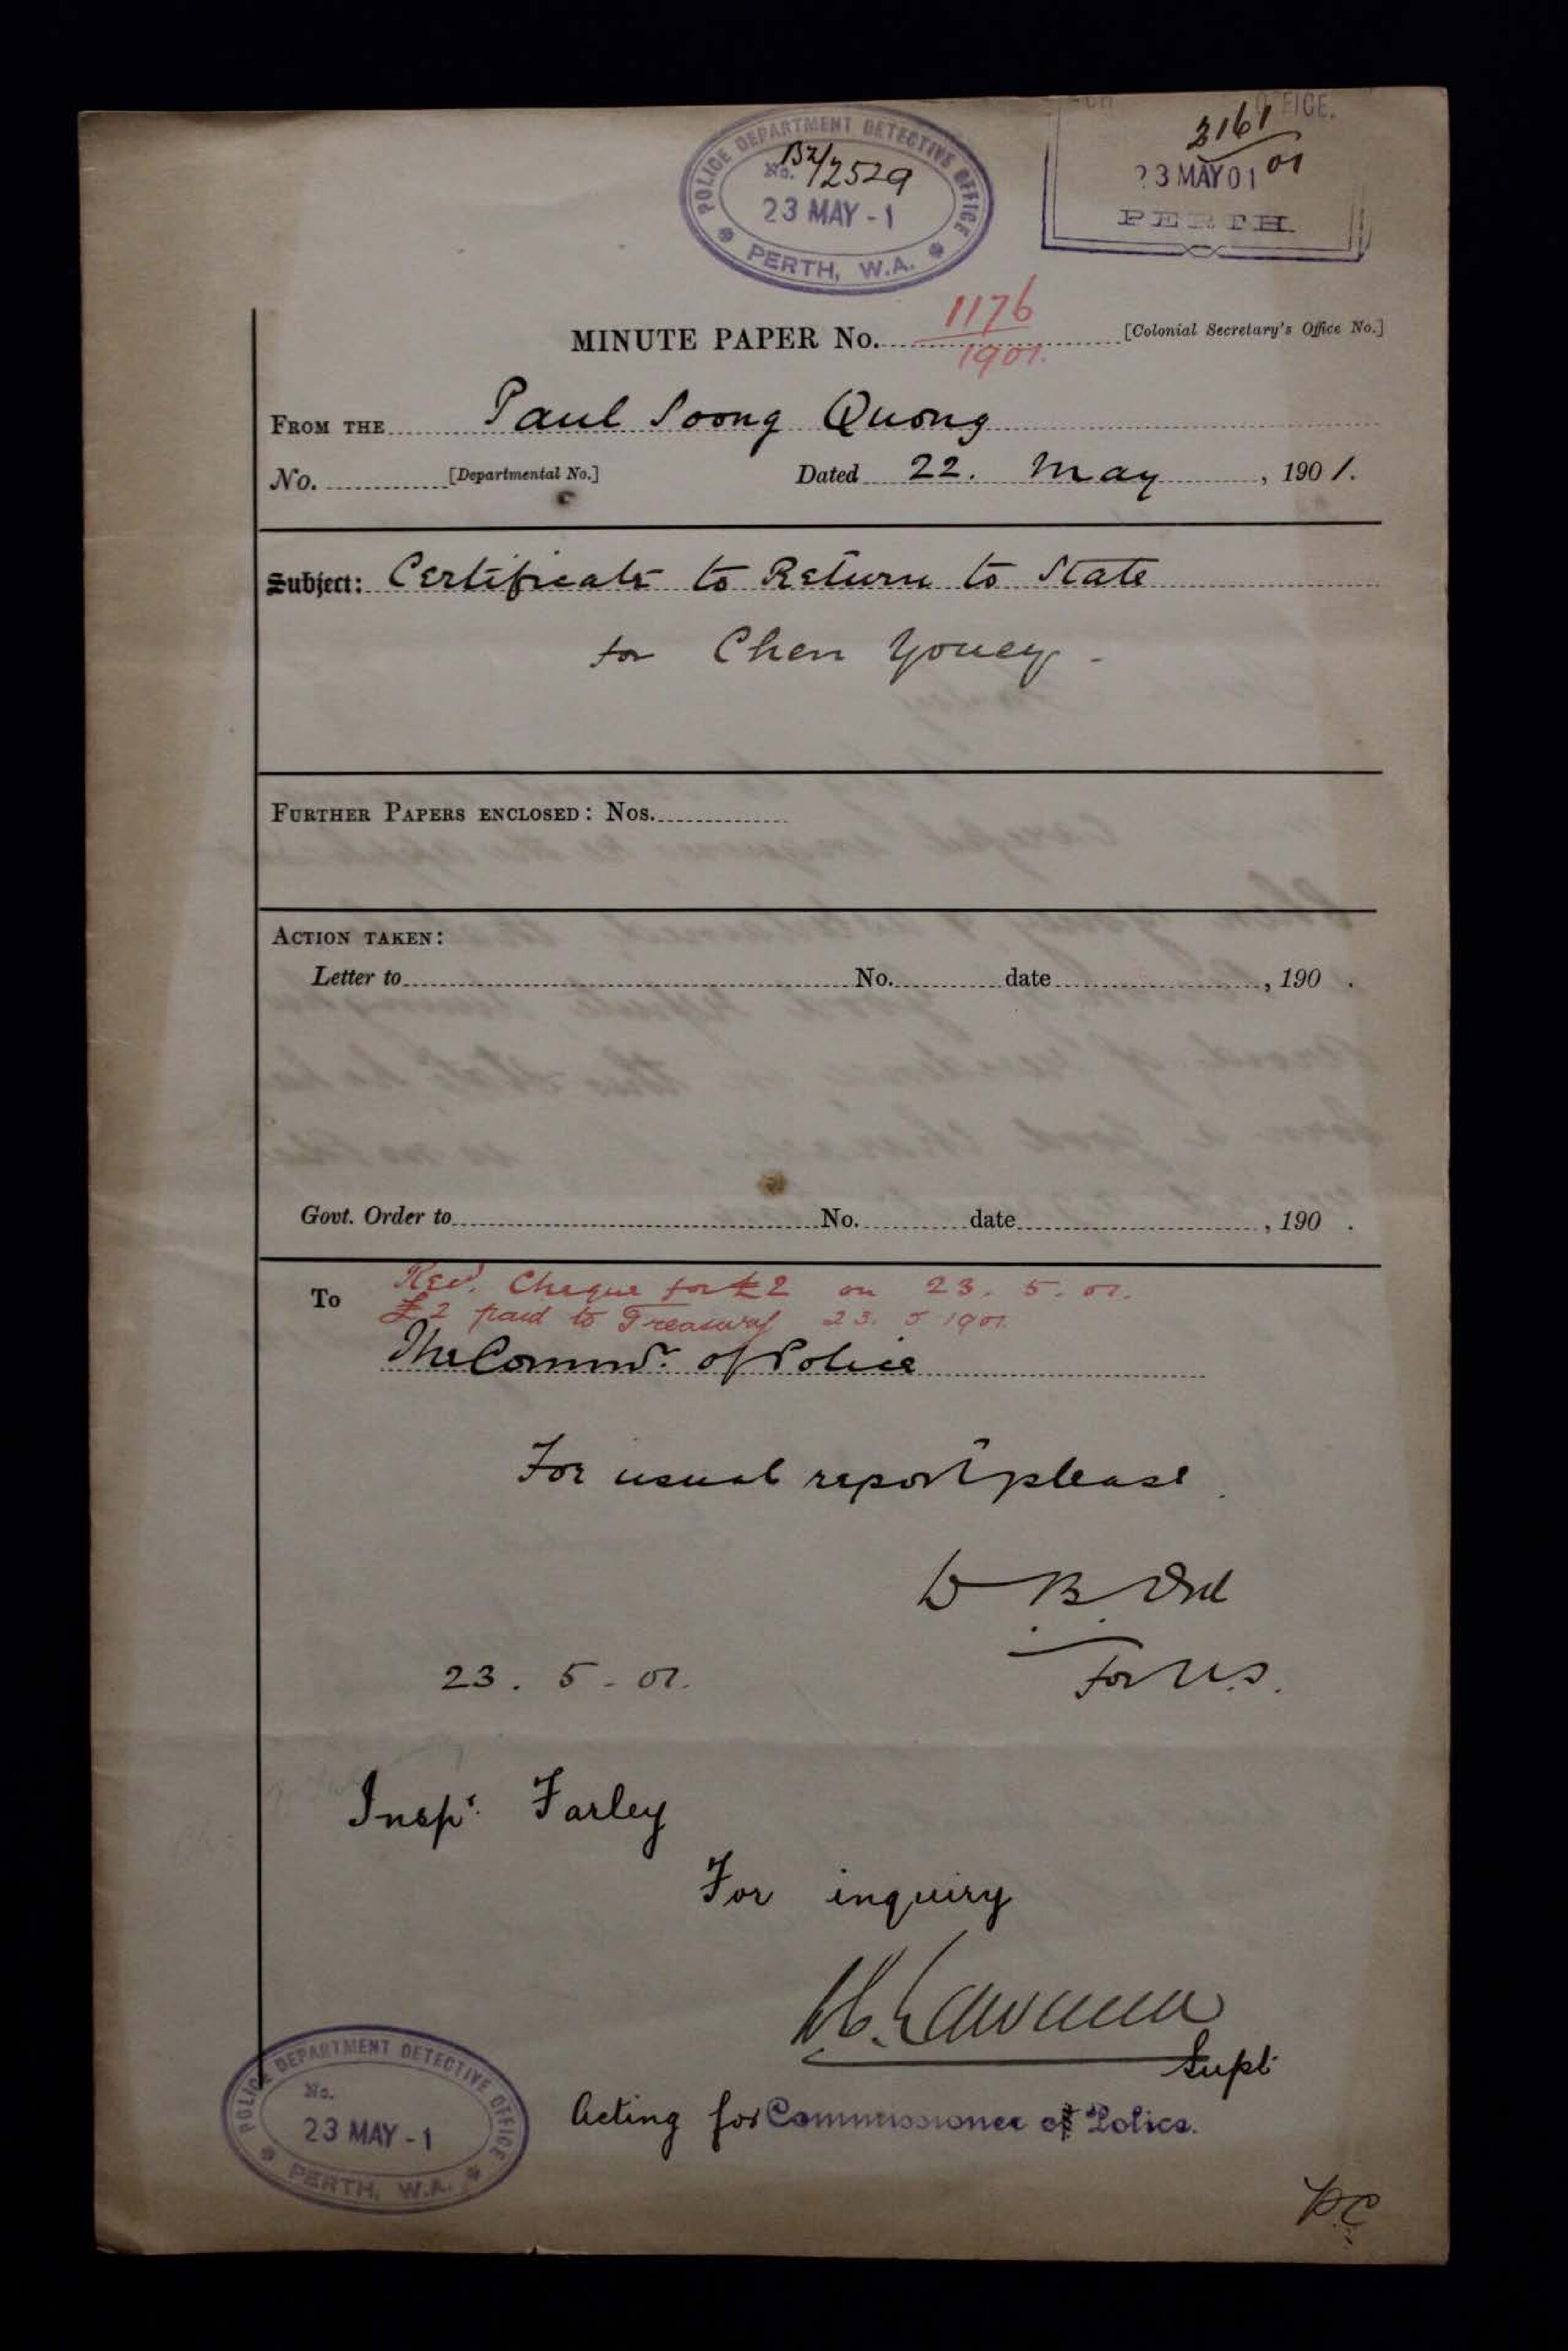 POLICE DEPARTMENT DETECTIVE OFFICE
No. B2/2529
23 MAY - 1
PERTH, W.A.
OFFICE.
3161/01
23 MAY 01
PERTH
MINUTE PAPER No. 1176/1901. [Colonial Secretary's Office No.]
FROM THE Paul Soong Quong
No. [Departmental No.] Dated 22. May, 1901.
Subject: Certificate to Return to State
for Chen Youey -
FURTHER PAPERS ENCLOSED: Nos.
ACTION TAKEN:
Letter to No. date , 190 .
Govt. Order to No. date , 190 .
Recd. Cheque for £2 on 23. 5. 01.
£2 paid to Treasury 23. 5 1901.
To The Commr. of Police
For usual report please.
B Ord
23. 5 - 01. for U.S.
Inspr. Farley
For inquiry
Lawrence
Supt
Acting for Commissioner of Police.
POLICE DEPARTMENT DETECTIVE OFFICE
No.
23 MAY - 1
PERTH, W.A.